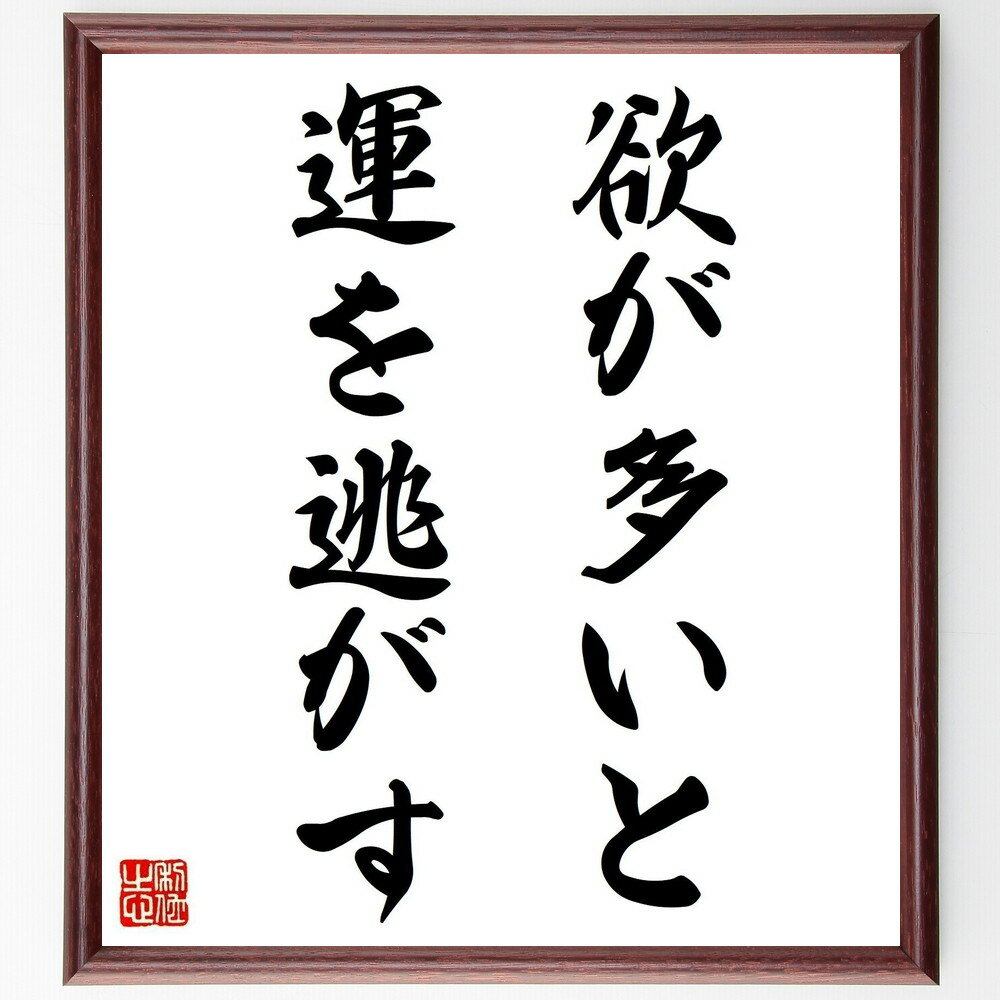 欲が多いと
運を逃がす